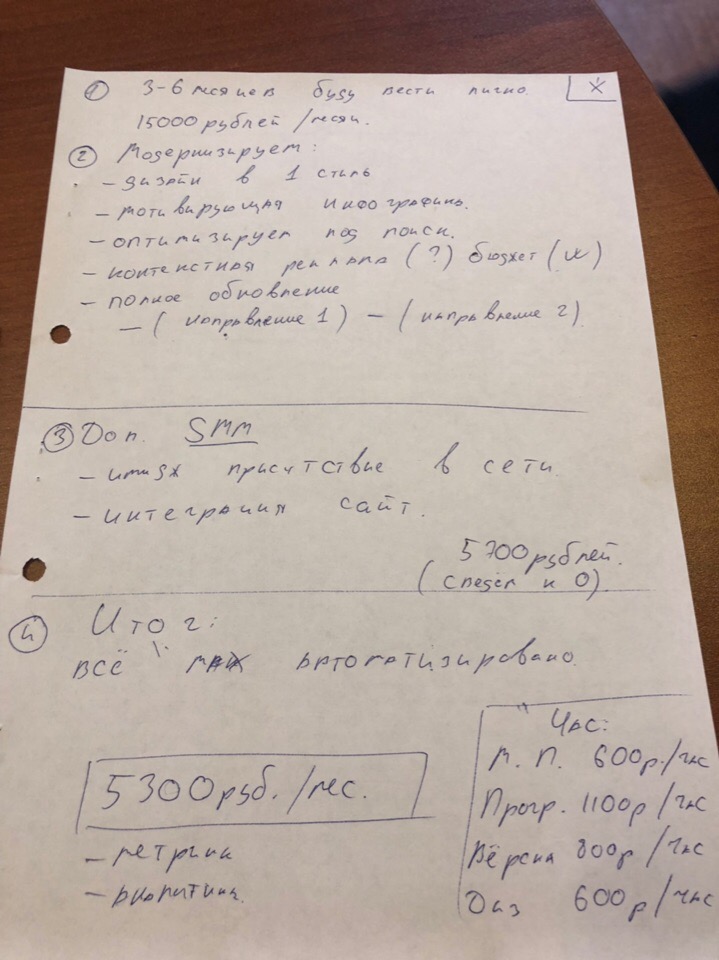 ① 3-6 месяцев буду вести лично. Х
15000 рублей / месяц.
② Модернизируем:
- дизайн в 1 стиль
- мотивирующая инфографика.
- оптимизируем под поиск.
- контекстная реклама (?) бюджет
- полное обновление
- (направление 1) - (направление 2)
③ Доп. SMM
- имидж присутствие в сети.
- интеграция сайт.
5700 рублей.
к 0).
④ Итог:
всё max автоматизировано.
5300 руб./мес.
- метрика
- аналитика.
Час:
М. П. 600р./час
Прогр. 1100р/час
Вёрстка 800р/час
Диз 600р/час